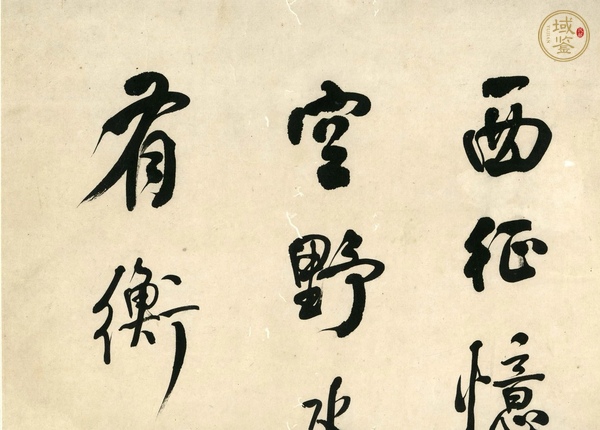 西征憶
空野
有衡
域鉴